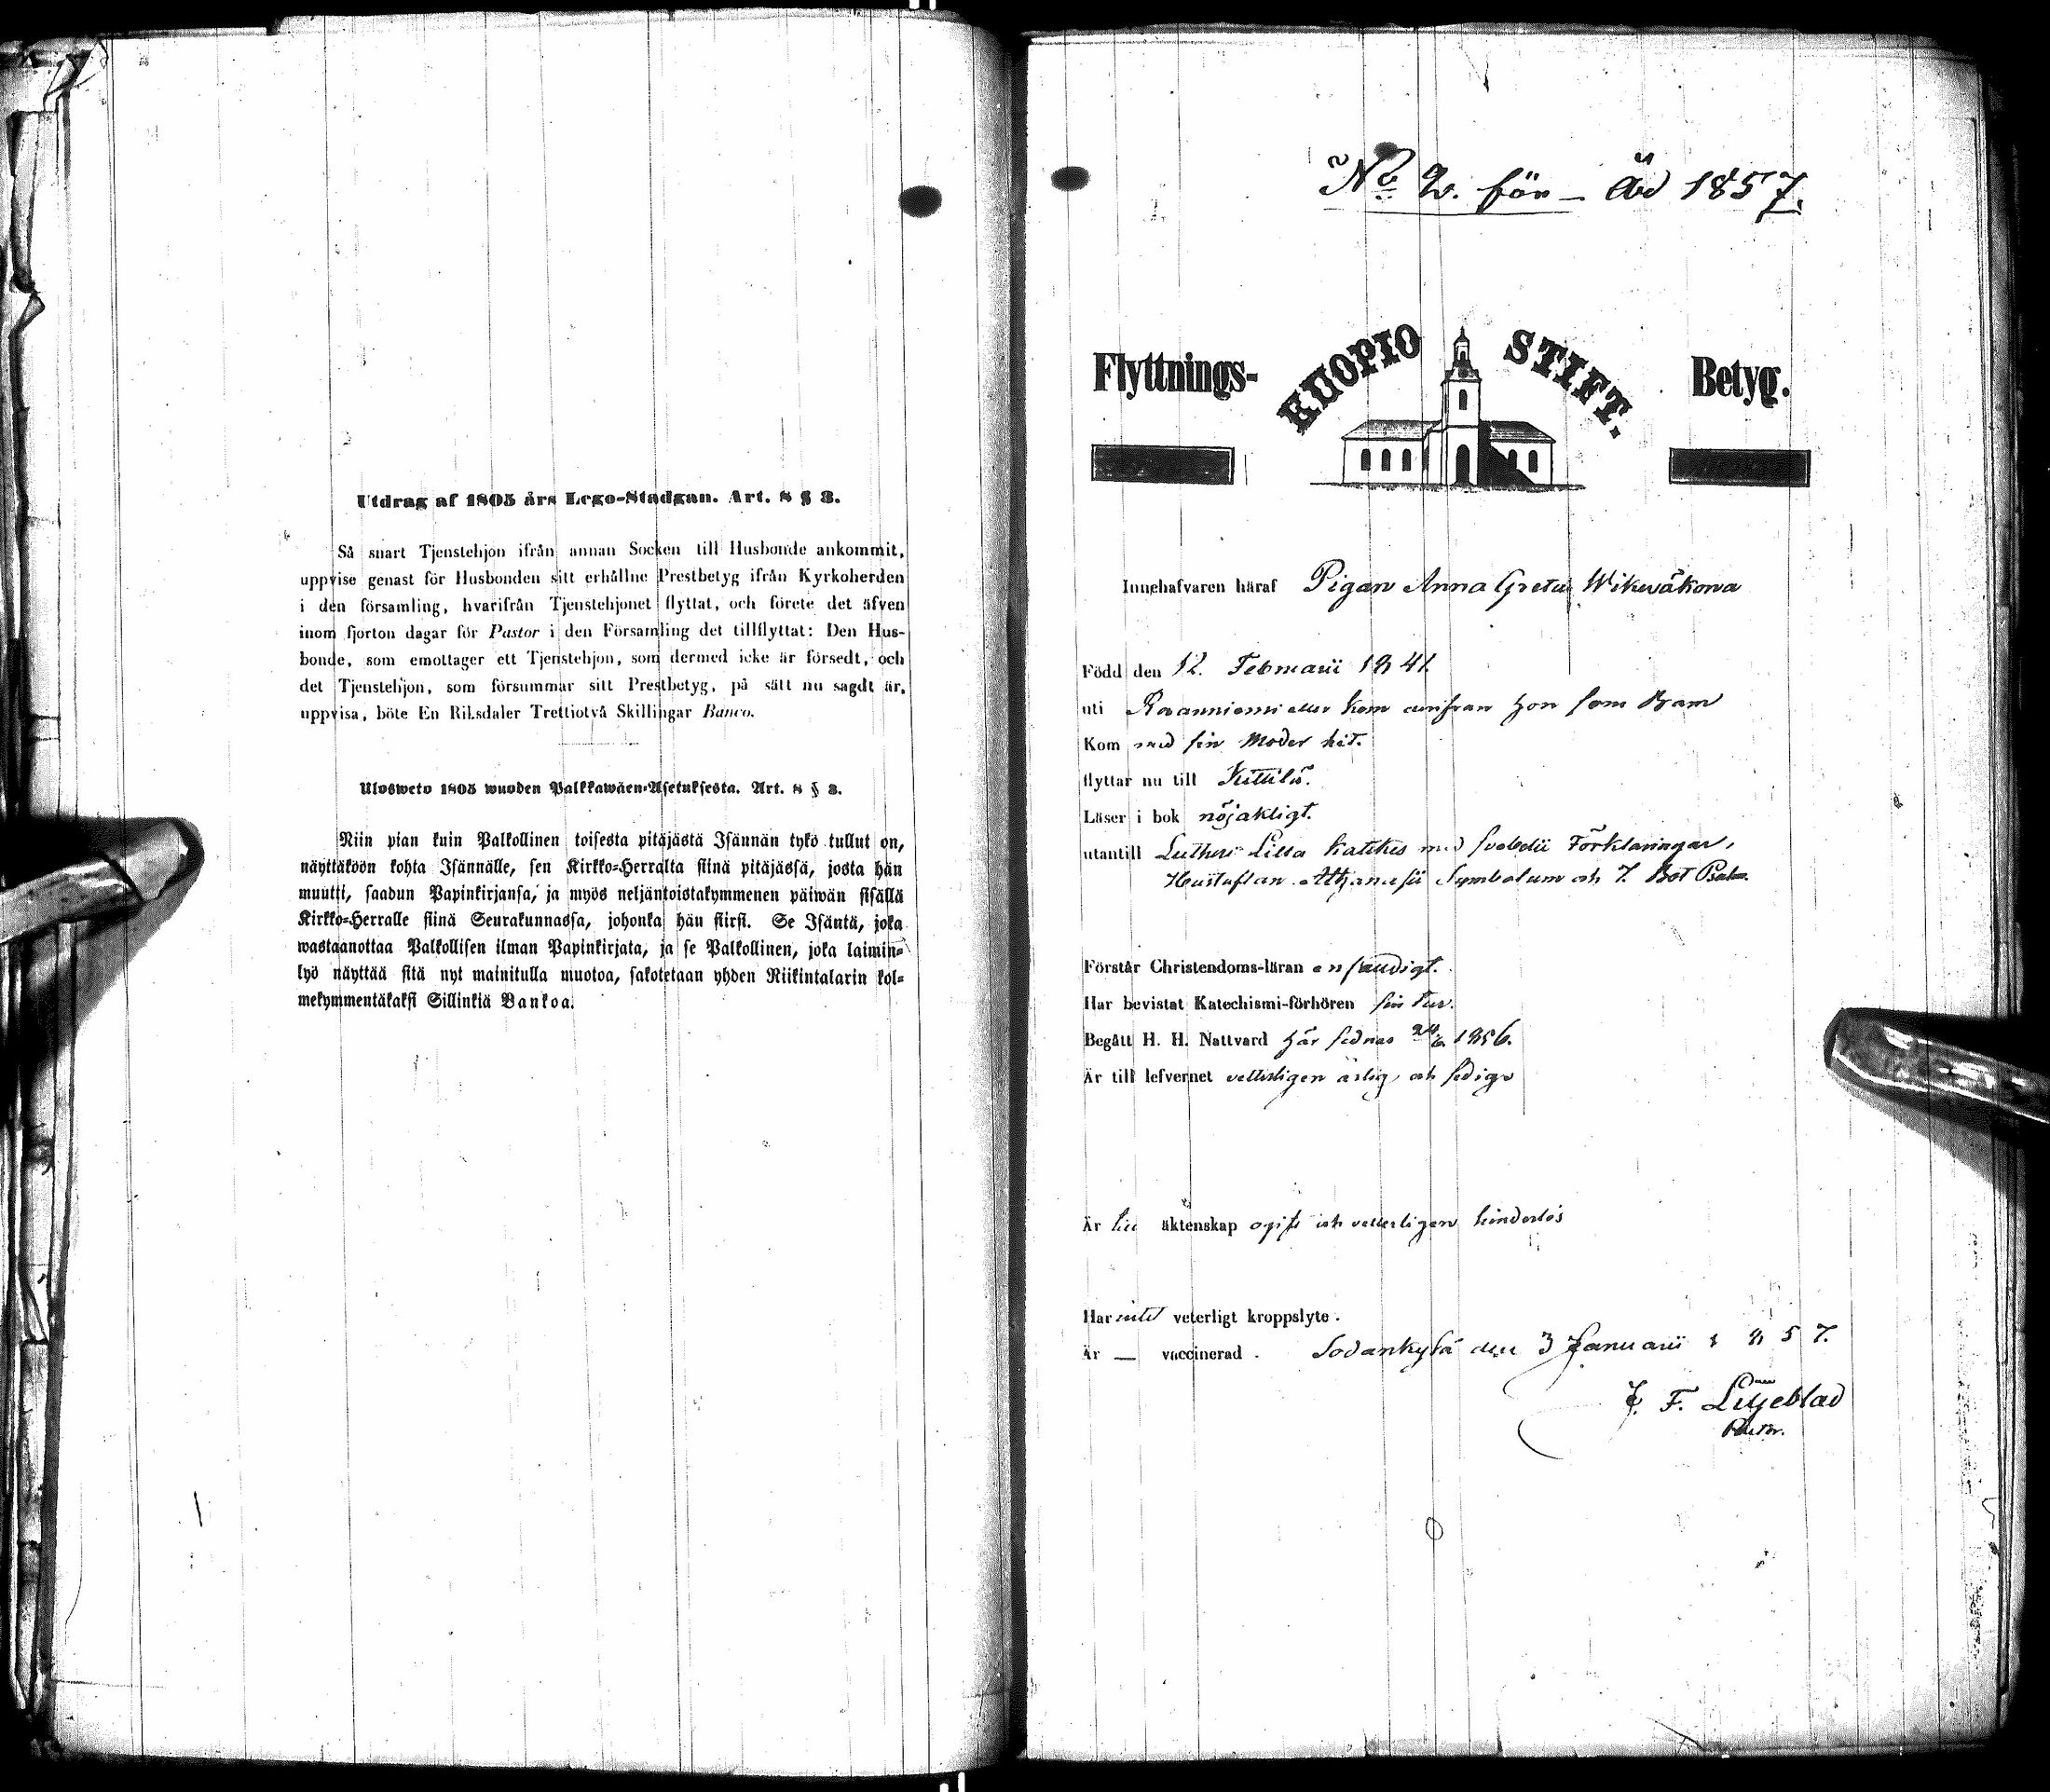 Utdrag af 1805 års Lego-Stadgan. Art. 8 § 3.
Så snart Tjenstehjon ifrån annan Socken till Husbonde ankommit,
uppvise genast för Husbonden sitt erhållne Prestbetyg ifrån Kyrkoherden
i den församling, hvarifrån Tjenstehjonet flyttat, och förete det äfven
inom fjorton dagar för Pastor i den Församling det tillflyttat: Den Hus-
bonde, som emottager ett Tjenstehjon, som dermed icke är försedt, och
det Tjenstehjon, som försummar sitt Prestbetyg, på sätt nu sagdt är,
uppvisa, böte En Riksdaler Trettiotvå Skillingar Banco.
Ulosweto 1805 wuoden Palkkawäen-Asetuksesta. Art. 8 § 3.
Niin pian kuin Palkollinen toisesta pitäjästä Isännän tykö tullut on,
näyttäköön kohta Isännälle, sen Kirkko-Herralta siinä pitäjässä, josta hän
muutti, saadun Papinkirjansa, ja myös neljäntoistakymmenen päiwän sisällä
Kirkko-Herralle siinä Seurakunnassa, johonka hän siirsi. Se Isäntä, joka
wastaanottaa Palkollisen ilman Papinkirjata, ja se Palkollinen, joka laimin-
lyö näyttää sitä nyt mainitulla muotoa, sakotetaan yhden Riikintalarin kol-
mekymmentäkaksi Sillinkiä Bankoa.
No 2. för År 1857.
Flyttnings- KUOPIO STIFT. Betyg.
Innehafvaren häraf Pigan Anna Greta
Född den 12. Februarii 1841.
uti hon som Barn
Kom med sin Moder hit.
flyttar nu till Kittilä.
Läser i bok nöjakligt.
utantill Lutheri Lilla Katekes med Svebelii Förklaringar,
Hustaflan Athanasii Symbolum och 7. Bot Psalm.
Förstår Christendoms-läran enfaldigt.
Har bevistat Katechismi-förhören sin tur.
Begått H. H. Nattvard här sednas 24/6 1856.
Är till lefvernet vetterligen ärlig och sedig
Är till äktenskap ogift och vetterligen hinderlös
Har intet veterligt kroppslyte.
Är — vaccinerad. Sodankylä den 3 Januarii 1857.
F. Liljeblad
Pastor.